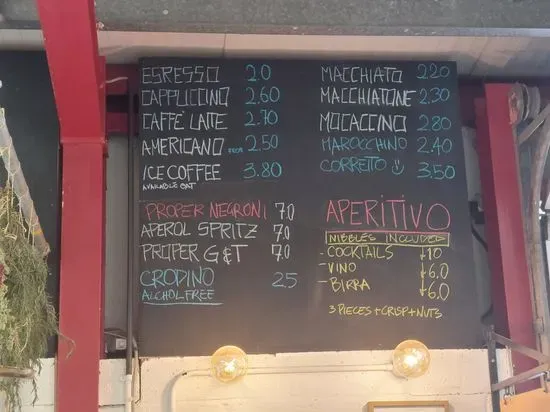 ESPRESSO 2.0
CAPPUCCINO 2.60
CAFFE' LATTE 2.70
AMERICANO 2.50
ICE COFFEE 3.80
AVAILABLE OAT
MACCHIATO 2.20
MACCHIATONE 2.30
MOCACCINO 2.80
MAROCCHINO 2.40
CORRETTO 3.50
PROPER NEGRONI 7.0
APEROL SPRITZ 7.0
PROPER G&T 7.0
CRODINO 2.5
ALCHOL FREE
APERITIVO
NIBBLES INCLUDED
- COCKTAILS 10
- VINO 6.0
- BIRRA 6.0
3 PIECES + CRISP + NUTS